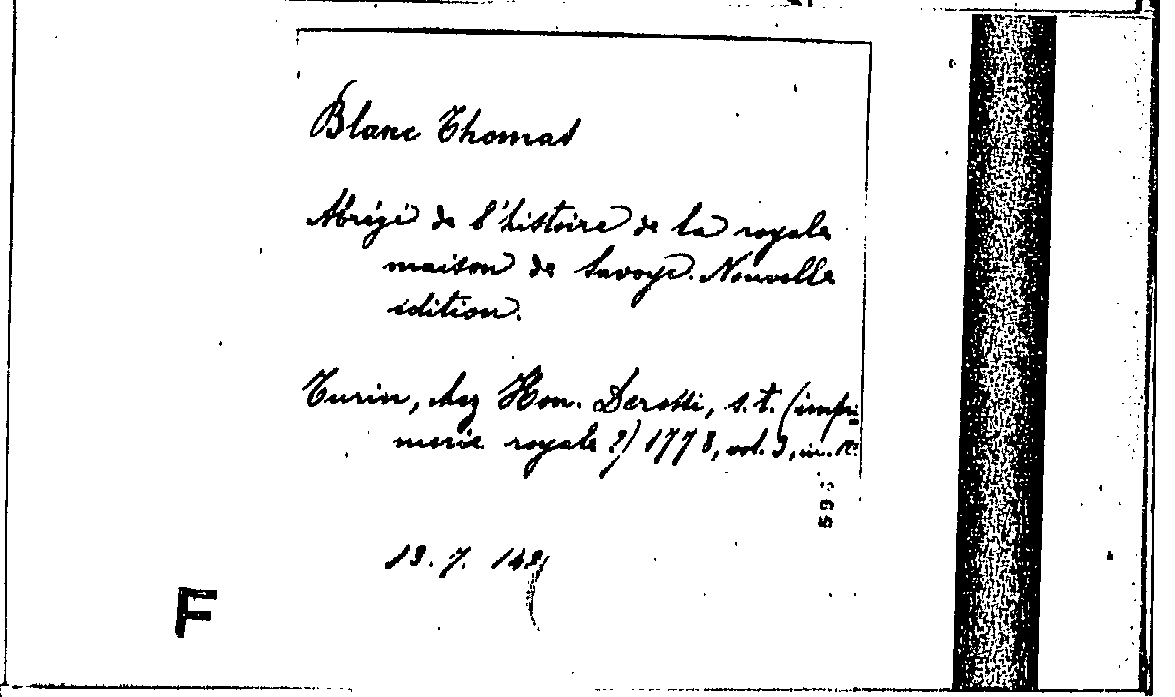 Blanc Thomas
Abrégé de l'histoire de la royale
maison de Savoye. Nouvelle
édition.
Turin, chez Hon. Derossi, s.t. (impri
merie royale?) 1778, vol. 3, in. 12°
595
F